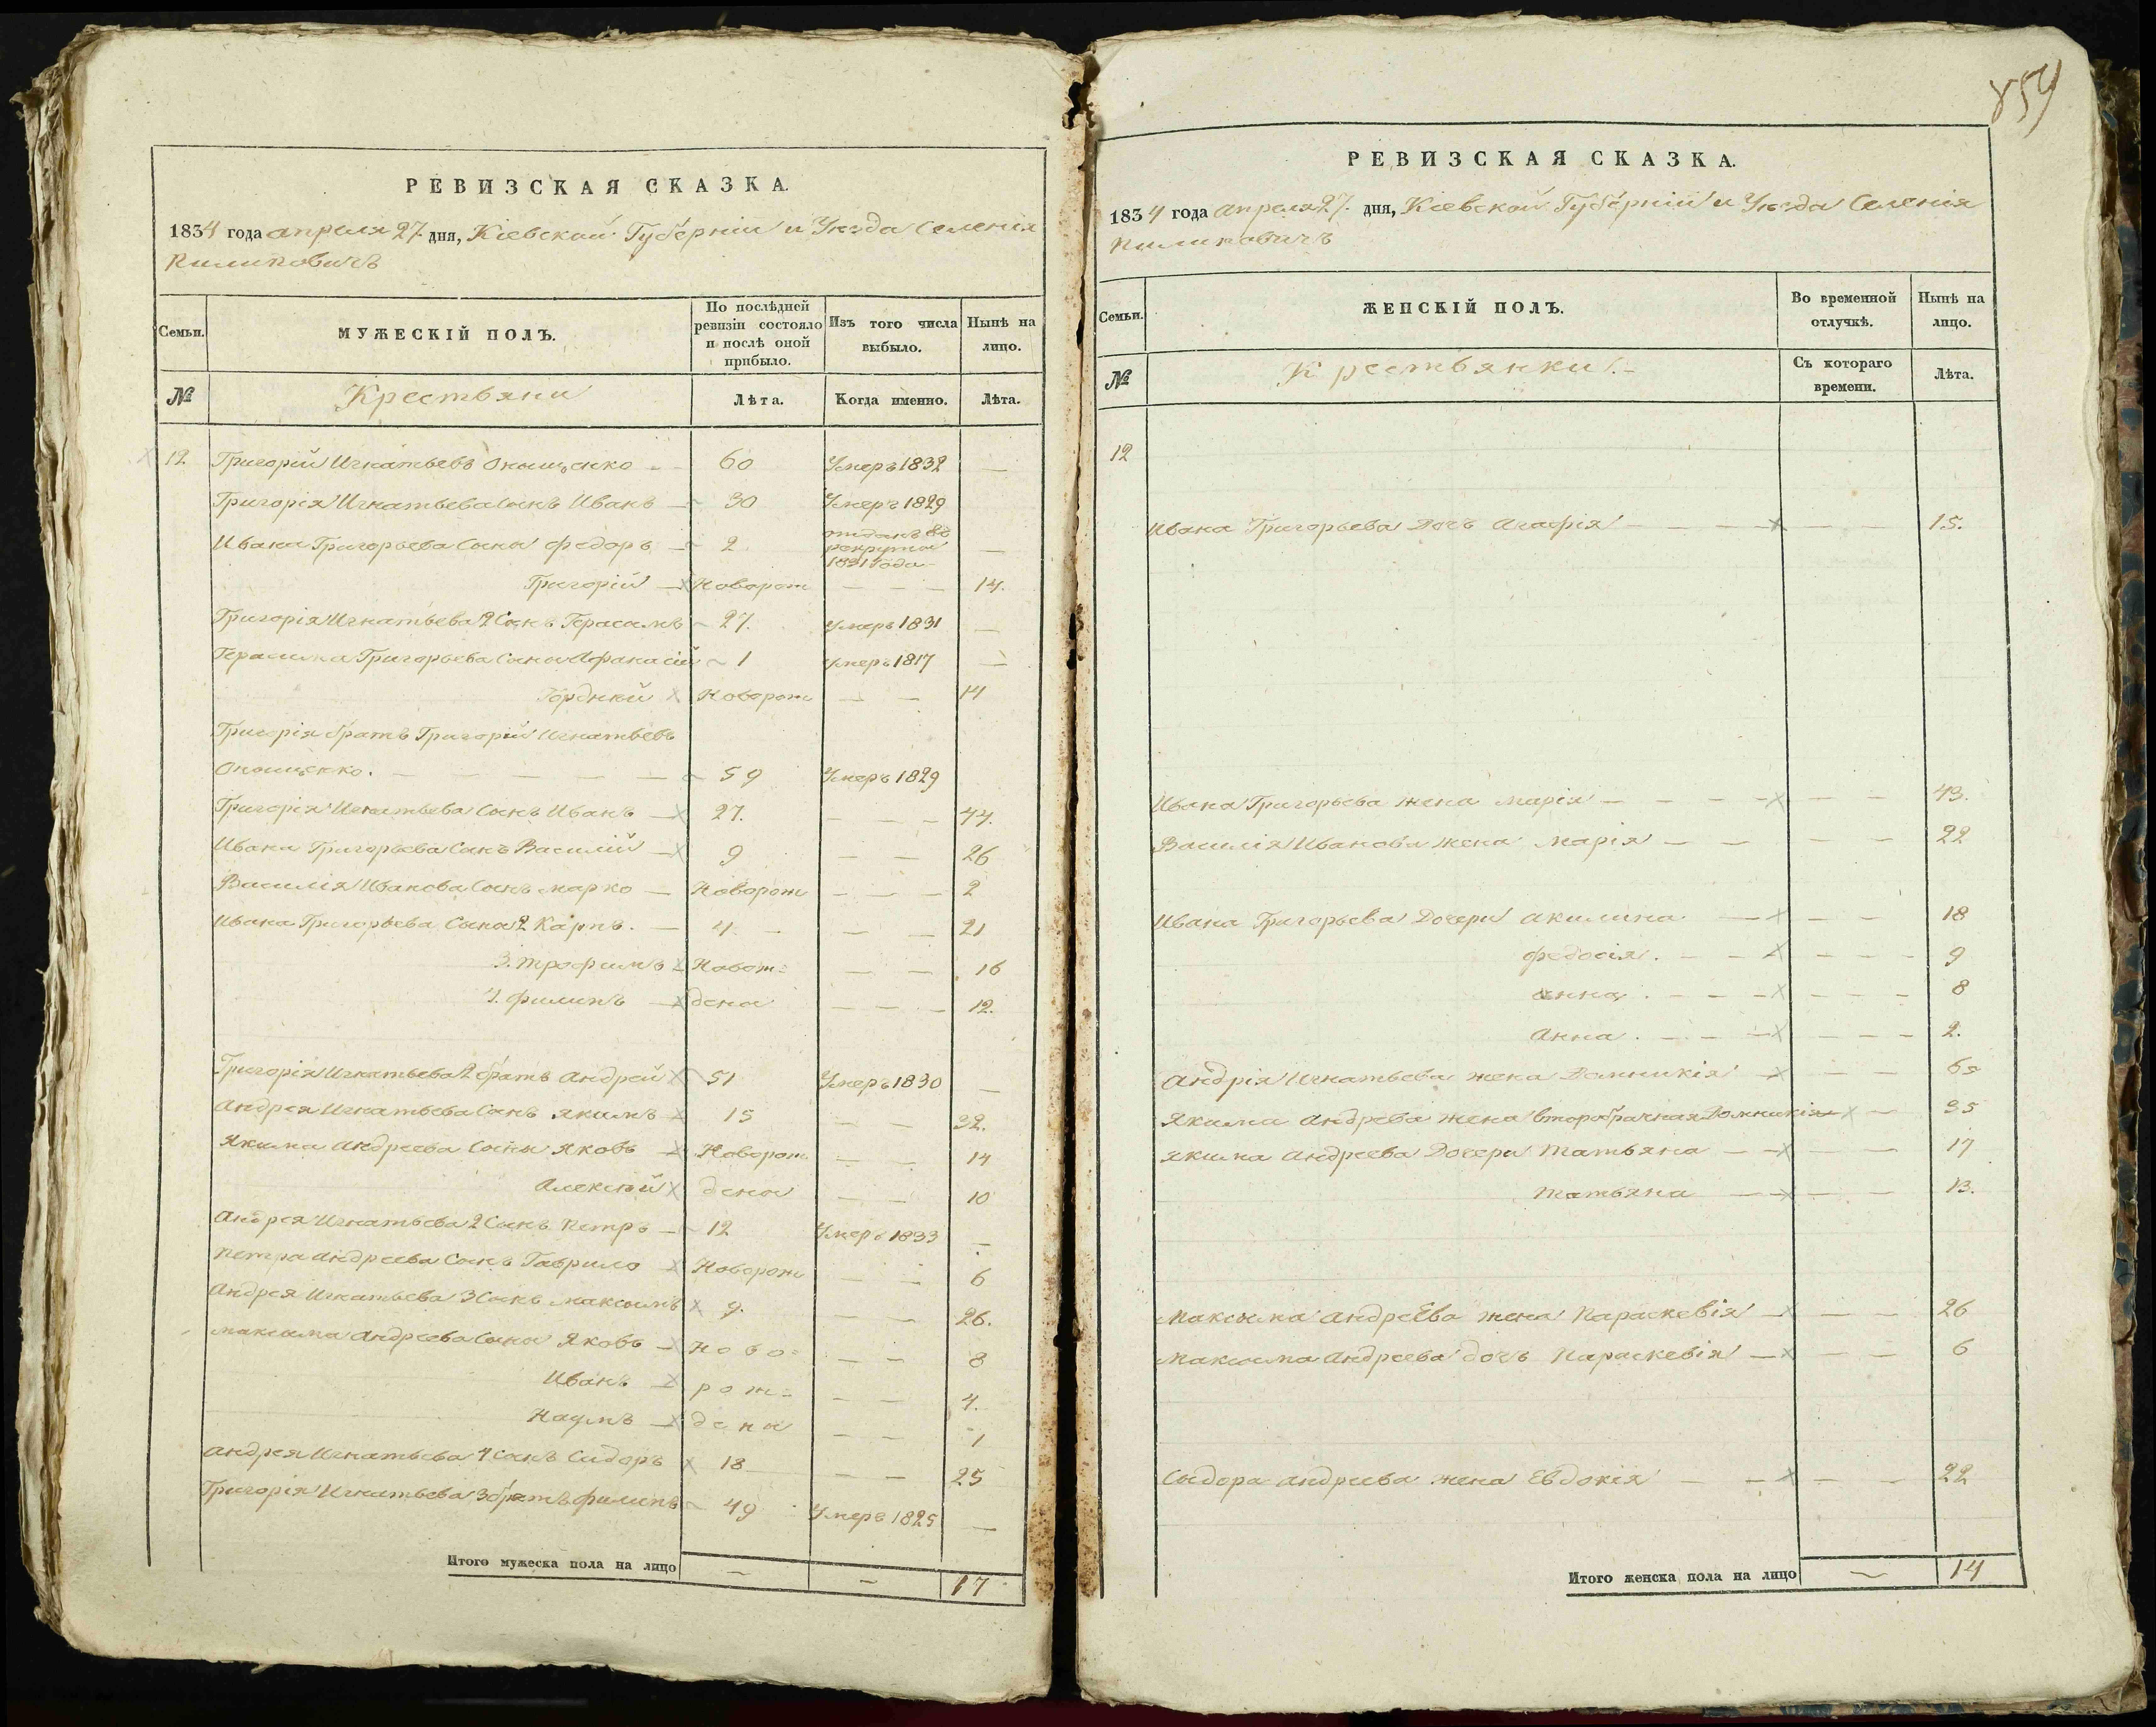 РЕВИЗСКАЯ СКАЗКА.
1834 года апреля 27. дня, Кіевской Губерніи и Уѣзда Селенія
Пилиповичъ
Семьи.
МУЖЕСКІЙ ПОЛЪ.
По послѣдней ревизіи состояло и послѣ оной прибыло.
Изъ того числа выбыло.
Нынѣ на лицо.
№
Крестьяни
Лѣта.
Когда именно.
Лѣта.
12. Григорій Игнатьевъ Онищенко — 60 Умеръ 1832 —
Григорія Игнатьева Сынъ Иванъ — 30 Умеръ 1829
Ивана Григорьева Сыны Федоръ — 2 отданъ въ рекруты 1831 года —
Григорій — Новорож — — — 14.
Григорія Игнатьева 2 Сынъ Герасимъ 27. умеръ 1831 —
Герасима Григорьева Сыны Афанасій 1 умеръ 1817 —
Гордѣй Новорож — — 14
Григорія братъ Григорій Игнатьевъ
Онищенко. — — — — — 59 Умеръ 1829
Григорія Игнатьева Сынъ Иванъ — 27. — — — 44.
Ивана Григорьева Сынъ Василій — 9 — — 26
Василія Иванова Сынъ Марко — Новорож — — — 2
Ивана Григорьева Сыны 2 Карпъ. — 4. — — — 21
3. Трофимъ Новож= — — 16
4. Филипъ — дены — — — 12.
Григорія Игнатьева 2 братъ Андрей 51 Умеръ 1830 —
Андрея Игнатьева Сынъ Якимъ 15 — — 32.
Якима Андреева Сыны Яковъ Новорож — — 14
Алексѣй дены — — 10
Андрея Игнатьева 2 Сынъ Петръ — 12 Умеръ 1833 —
Петра Андреева Сынъ Гаврило Новорож — — 6
Андрея Игнатьева 3 Сынъ Максимъ 9. — — 26.
Максима Андреева Сыны Яковъ — Ново= — — 8
Иванъ рож= — — 4.
Наумъ — дены — — 1
Андрея Игнатьева 4 Сынъ Сидоръ 18 — — 25
Григорія Игнатьева 3 братъ Филипъ 49 Умеръ 1825 —
Итого мужеска пола на лицо — — 17
859
РЕВИЗСКАЯ СКАЗКА.
1834 года апреля 27. дня, Кіевской Губерніи и Уѣзда Селенія
Пилиповичъ
Семьи.
ЖЕНСКІЙ ПОЛЪ.
Во временной отлучкѣ.
Нынѣ на лицо.
№
Крестьянки.
Съ котораго времени.
Лѣта.
12
Ивана Григорьева Дочъ Агафія — — — — — 15.
Ивана Григорьева жена Марія — — — — — — 43.
Василія Иванова жена Марія — — — — 22
Ивана Григорьева Дочери Акилина — — — 18
Федосія. — — — — — 9
Анна. — — — — — — 8
Анна. — — — — — — 2.
Андрія Игнатьева жена Домникія — — 65
Якима Андрева жена второбрачная Домникія — 35
Якима Андреева Дочери Татьяна — — — — 17
Татьяна — — — — 13.
Максима Андреева жена Параскевія — — — 26
Максима Андреева дочъ Параскевія — — — 6
Сидора Андреева жена Евдокія — — — — 22
Итого женска пола на лицо — 14